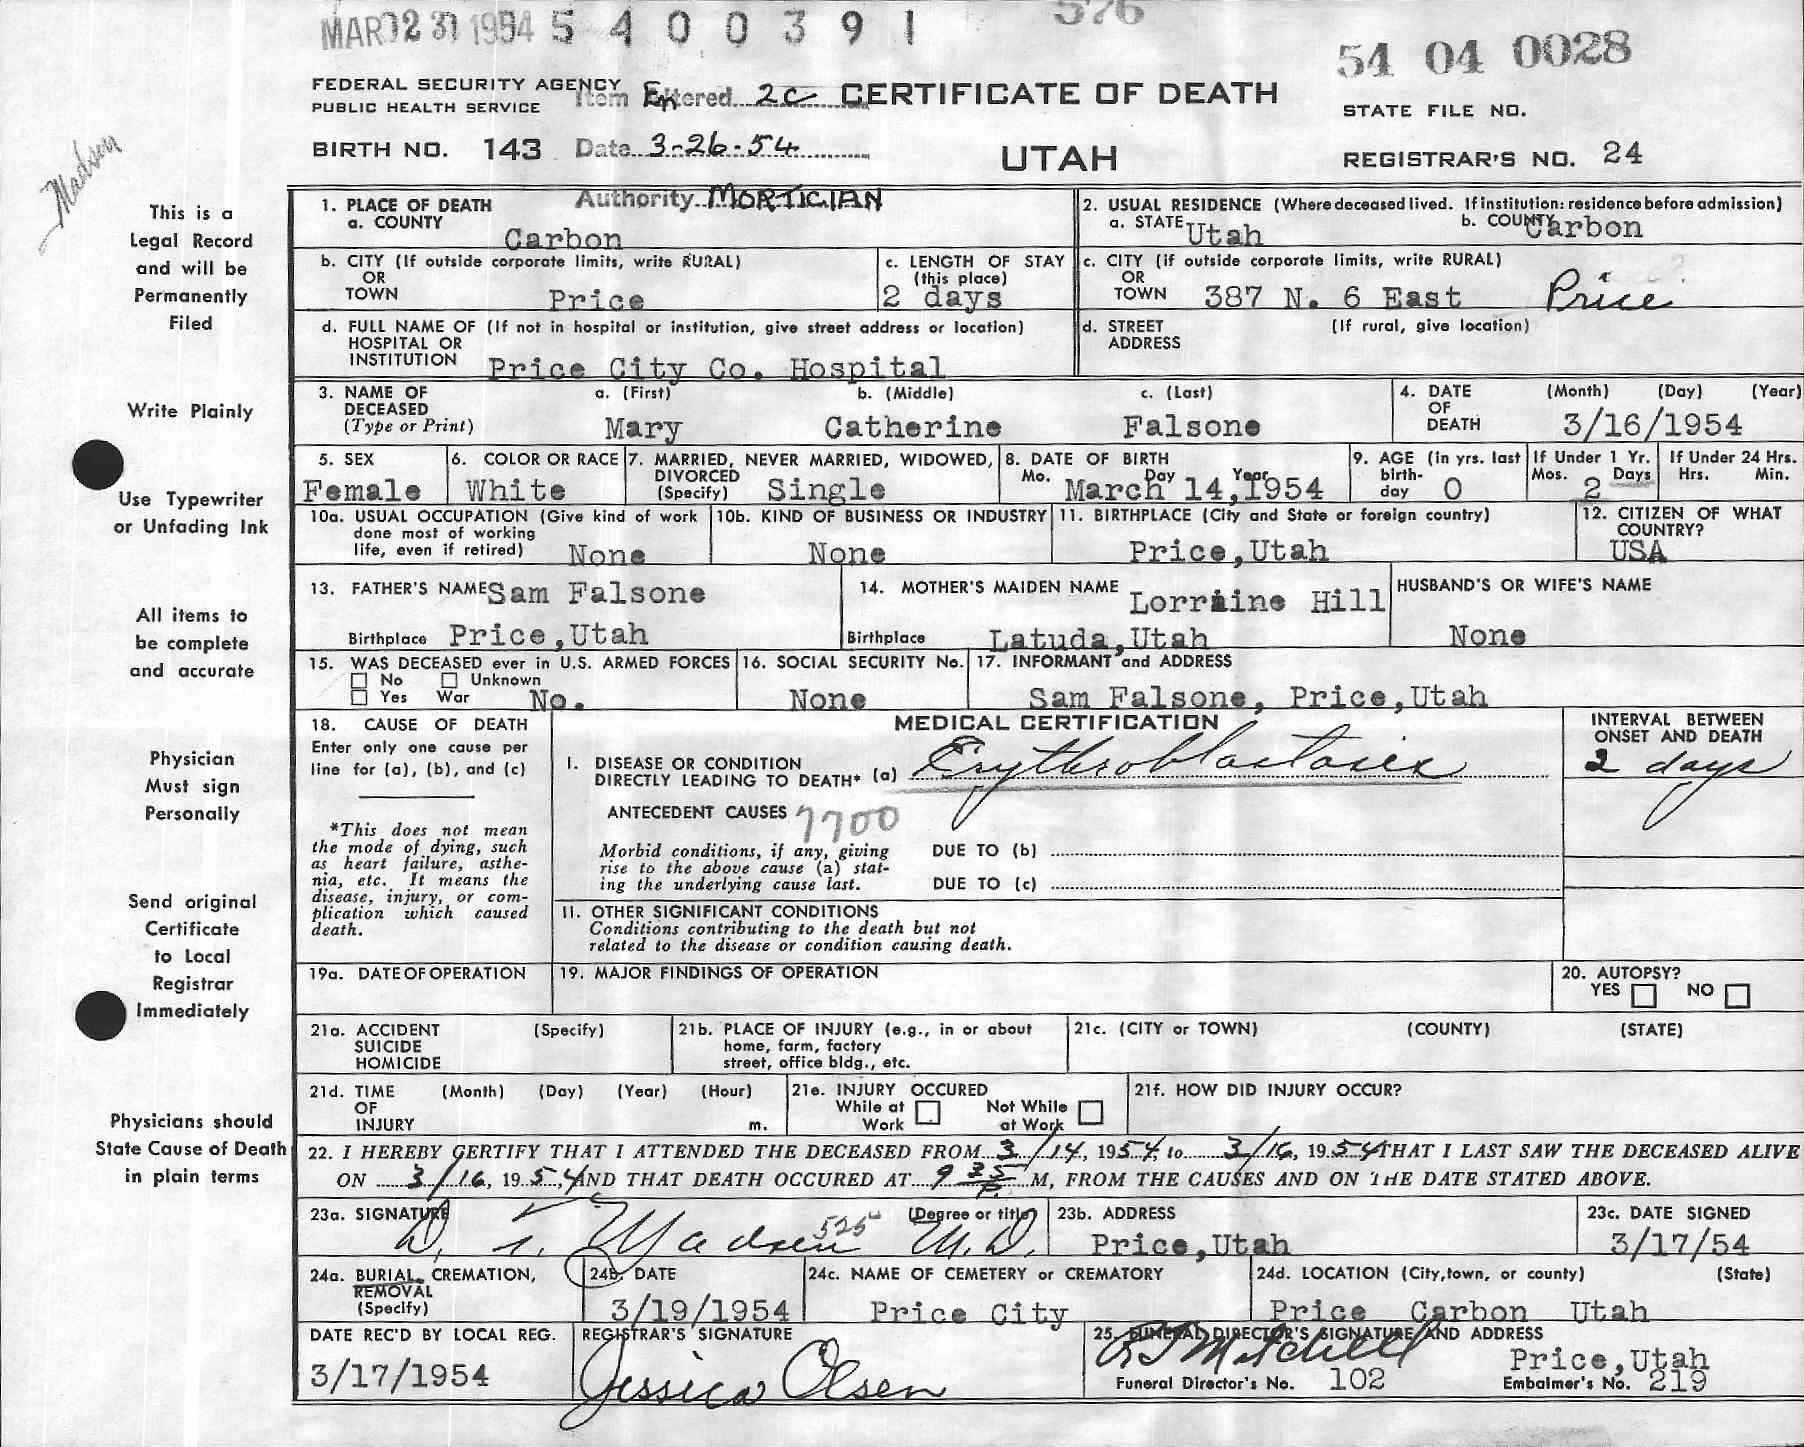 MAR 23 1954 5 4 0 0 3 9 1 576
54 04 0028
FEDERAL SECURITY AGENCY
PUBLIC HEALTH SERVICE
Item Entered 2c
CERTIFICATE OF DEATH
STATE FILE NO.
BIRTH NO. 143
Date 3-26-54
UTAH
REGISTRAR'S NO. 24
Authority MORTICIAN
Madsen
This is a
Legal Record
and will be
Permanently
Filed
Write Plainly
Use Typewriter
or Unfading Ink
All items to
be complete
and accurate
Physician
Must sign
Personally
Send original
Certificate
to Local
Registrar
Immediately
Physicians should
State Cause of Death
in plain terms
1. PLACE OF DEATH
a. COUNTY
Carbon
2. USUAL RESIDENCE (Where deceased lived. If institution: residence before admission)
a. STATE Utah b. COUNTY Carbon
b. CITY (If outside corporate limits, write RURAL)
OR
TOWN Price
c. LENGTH OF STAY
(this place)
2 days
c. CITY (if outside corporate limits, write RURAL)
OR
TOWN 387 N. 6 East Price
d. FULL NAME OF (If not in hospital or institution, give street address or location)
HOSPITAL OR
INSTITUTION Price City Co. Hospital
d. STREET (If rural, give location)
ADDRESS
3. NAME OF a. (First) b. (Middle) c. (Last)
DECEASED
(Type or Print) Mary Catherine Falsone
4. DATE (Month) (Day) (Year)
OF
DEATH 3/16/1954
5. SEX
Female
6. COLOR OR RACE
White
7. MARRIED, NEVER MARRIED, WIDOWED,
DIVORCED
(Specify) Single
8. DATE OF BIRTH
Mo. Day Year
March 14,1954
9. AGE (in yrs. last
birth-
day 0
If Under 1 Yr.
Mos. Days
2
If Under 24 Hrs.
Hrs. Min.
10a. USUAL OCCUPATION (Give kind of work
done most of working
life, even if retired) None
10b. KIND OF BUSINESS OR INDUSTRY
None
11. BIRTHPLACE (City and State or foreign country)
Price,Utah
12. CITIZEN OF WHAT
COUNTRY?
USA
13. FATHER'S NAME Sam Falsone
Birthplace Price,Utah
14. MOTHER'S MAIDEN NAME Lorraine Hill
Birthplace Latuda,Utah
HUSBAND'S OR WIFE'S NAME
None
15. WAS DECEASED ever in U.S. ARMED FORCES
No Unknown
Yes War No.
16. SOCIAL SECURITY No.
None
17. INFORMANT and ADDRESS
Sam Falsone, Price,Utah
18. CAUSE OF DEATH
Enter only one cause per
line for (a), (b), and (c)
*This does not mean
the mode of dying, such
as heart failure, asthe-
nia, etc. It means the
disease, injury, or com-
plication which caused
death.
MEDICAL CERTIFICATION
I. DISEASE OR CONDITION
DIRECTLY LEADING TO DEATH* (a) Erythroblastosis
ANTECEDENT CAUSES 7700
Morbid conditions, if any, giving
rise to the above cause (a) stat-
ing the underlying cause last.
DUE TO (b)
DUE TO (c)
II. OTHER SIGNIFICANT CONDITIONS
Conditions contributing to the death but not
related to the disease or condition causing death.
INTERVAL BETWEEN
ONSET AND DEATH
2 days
19a. DATE OF OPERATION
19. MAJOR FINDINGS OF OPERATION
20. AUTOPSY?
YES NO
21a. ACCIDENT (Specify)
SUICIDE
HOMICIDE
21b. PLACE OF INJURY (e.g., in or about
home, farm, factory
street, office bldg., etc.
21c. (CITY or TOWN) (COUNTY) (STATE)
21d. TIME (Month) (Day) (Year) (Hour)
OF
INJURY m.
21e. INJURY OCCURED
While at Not While
Work at Work
21f. HOW DID INJURY OCCUR?
22. I HEREBY CERTIFY THAT I ATTENDED THE DECEASED FROM 3/14, 1954, to 3/16, 1954 THAT I LAST SAW THE DECEASED ALIVE
ON 3/16, 1954, AND THAT DEATH OCCURED AT 9 35 P. M, FROM THE CAUSES AND ON THE DATE STATED ABOVE.
23a. SIGNATURE (Degree or title)
Madsen 525 M.D.
23b. ADDRESS
Price,Utah
23c. DATE SIGNED
3/17/54
24a. BURIAL, CREMATION,
REMOVAL
(Specify)
24b. DATE
3/19/1954
24c. NAME OF CEMETERY or CREMATORY
Price City
24d. LOCATION (City,town, or county) (State)
Price Carbon Utah
DATE REC'D BY LOCAL REG.
3/17/1954
REGISTRAR'S SIGNATURE
Jessica Olsen
25. FUNERAL DIRECTOR'S SIGNATURE AND ADDRESS
Mitchell Price,Utah
Funeral Director's No. 102 Embalmer's No. 219